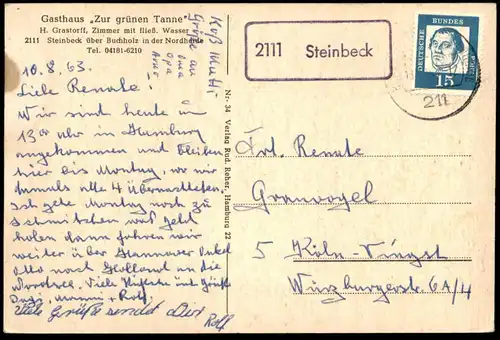 Gasthaus „Zur grünen Tanne"
H. Grastorff, Zimmer mit fließ. Wasser
2111 Steinbeck über Buchholz in der Nordheide
Tel. 04181-6210
10.8.63.
Liebe Renate!
Wir sind heute um
13°° Uhr in Hamburg
angekommen und bleiben
hier bis Montag, wo wir
damals alle 4 übernachteten.
Ich gehe Montag noch zu
Schmitchen und Geld
holen dann fahren wir
weiter über Hannover Onkel
Otto nach Holland an die
Nordsee. Viele Küsse und Grüße
Viele Grüße sendet Der
Rolf
Kuß Mutti
Grüße an
Oma
Opa
Nr. 34 Verlag Rud. Reher, Hamburg 22
2111 Steinbeck
DEUTSCHE BUNDESPOST
15
211
Frl. Renate
Granvogel
5 Köln-Vingst
Würzburgerstr. 6A/4